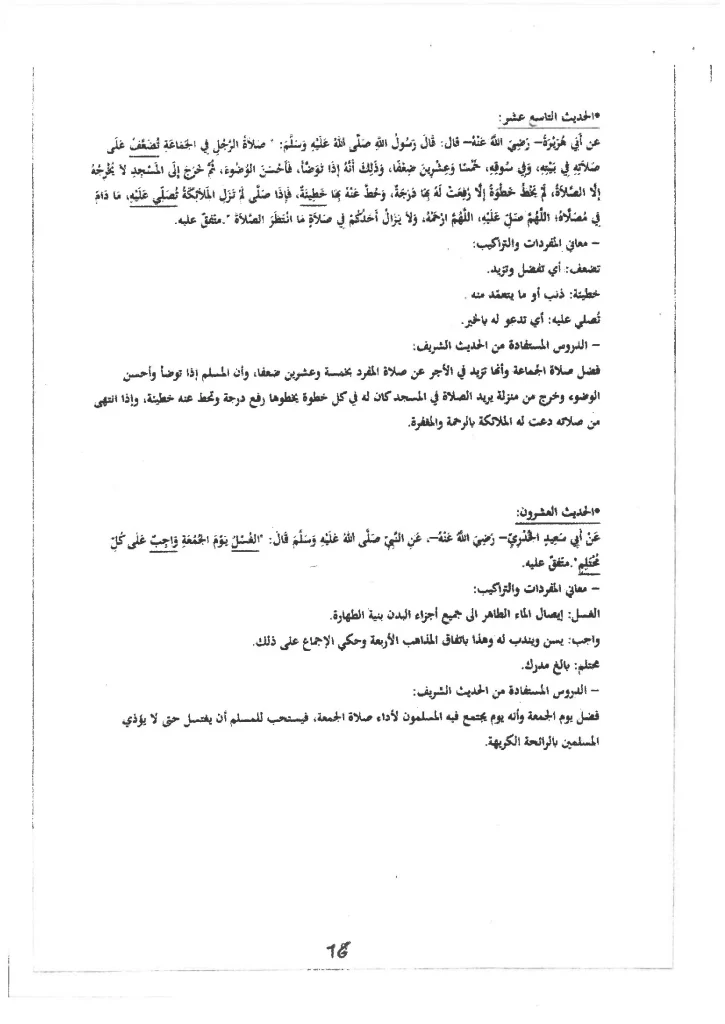 *الحديث التاسع عشر:
عن أَبِي هُرَيْرَةَ– رَضِيَ اللهُ عَنْهُ– قال: قَالَ رَسُولُ اللهِ صَلَّى اللهُ عَلَيْهِ وَسَلَّمَ: " صَلاَةُ الرَّجُلِ فِي الجَمَاعَةِ تُضَعَّفُ عَلَى
صَلاَتِهِ فِي بَيْتِهِ، وَفِي سُوقِهِ، خَمْسًا وَعِشْرِينَ ضِعْفًا، وَذَلِكَ أَنَّهُ إِذَا تَوَضَّأَ، فَأَحْسَنَ الوُضُوءَ، ثُمَّ خَرَجَ إِلَى المَسْجِدِ لاَ يُخْرِجُهُ
إِلَّا الصَّلاَةُ، لَمْ يَخْطُ خَطْوَةً إِلَّا رُفِعَتْ لَهُ بِهَا دَرَجَةٌ، وَحُطَّ عَنْهُ بِهَا خَطِيئَةٌ، فَإِذَا صَلَّى لَمْ تَزَلِ المَلاَئِكَةُ تُصَلِّي عَلَيْهِ، مَا دَامَ
فِي مُصَلَّاهُ؛ اللَّهُمَّ صَلِّ عَلَيْهِ، اللَّهُمَّ ارْحَمْهُ، وَلاَ يَزَالُ أَحَدُكُمْ فِي صَلاَةٍ مَا انْتَظَرَ الصَّلاَةَ ".متفق عليه.
– معاني المفردات والتراكيب:
تضعف: أي تفضل وتزيد.
خطيئة: ذنب أو ما يتعمد منه .
تُصلي عليه: أي تدعو له بالخير.
– الدروس المستفادة من الحديث الشريف:
فضل صلاة الجماعة وأنها تزيد في الأجر عن صلاة المفرد بخمسة وعشرين ضعفا، وأن المسلم إذا توضأ وأحسن
الوضوء وخرج من منزلة يريد الصلاة في المسجد كان له في كل خطوة يخطوها رفع درجة وتحط عنه خطيئة، وإذا انتهى
من صلاته دعت له الملائكة بالرحمة والمغفرة.
*الحديث العشرون:
عَنْ أَبِي سَعِيدٍ الخُدْرِيِّ– رَضِيَ اللهُ عَنْهُ–، عَنِ النَّبِيِّ صَلَّى اللهُ عَلَيْهِ وَسَلَّمَ قَالَ: "الغُسْلُ يَوْمَ الجُمُعَةِ وَاجِبٌ عَلَى كُلِّ
مُحْتَلِمٍ".متفق عليه.
– معاني المفردات والتراكيب:
الغسل: إيصال الماء الطاهر الى جميع أجزاء البدن بنية الطهارة.
واجب: يسن ويندب له وهذا باتفاق المذاهب الأربعة وحكي الإجماع على ذلك.
محتلم: بالغ مدرك.
– الدروس المستفادة من الحديث الشريف:
فضل يوم الجمعة وأنه يوم يجتمع فيه المسلمون لأداء صلاة الجمعة، فيستحب للمسلم أن يغتسل حتى لا يؤذي
المسلمين بالرائحة الكريهة.